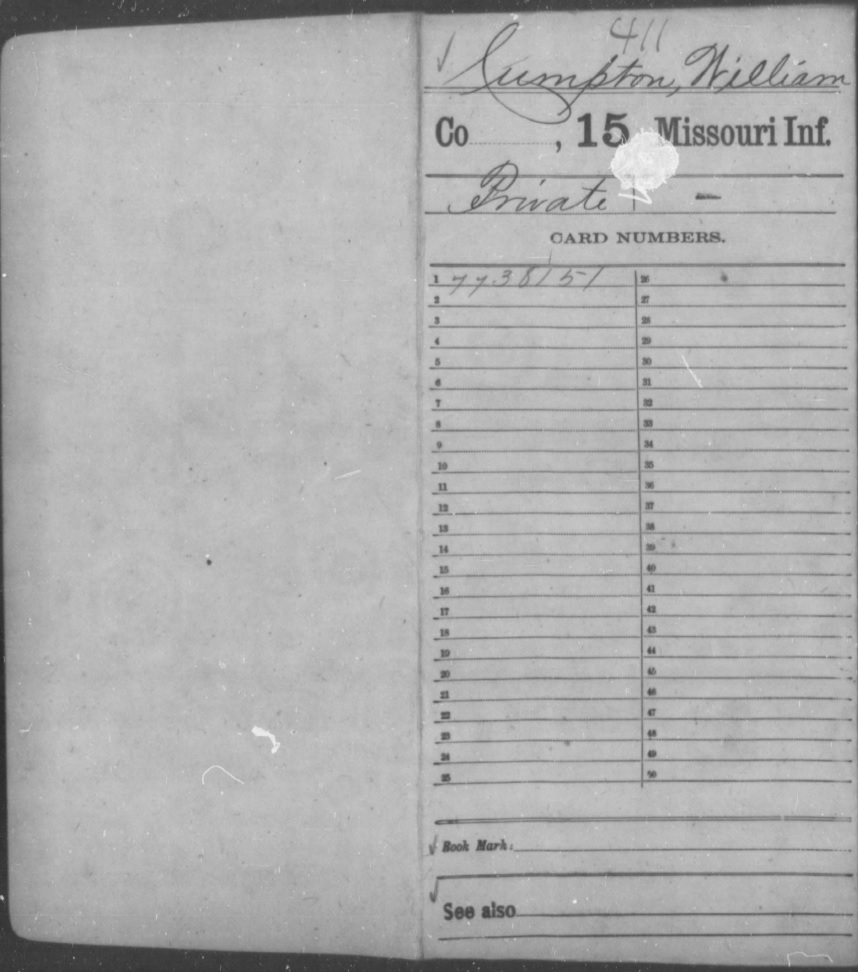 411
Cumpton, William
Co , 15 Missouri Inf.
Private -
CARD NUMBERS.
1 7738151 26
2 27
3 28
4 29
5 30
6 31
7 32
8 33
9 34
10 35
11 36
12 37
13 38
14 39
15 40
16 41
17 42
18 43
19 44
20 45
21 46
22 47
23 48
24 49
25 50
Book Mark:
See also